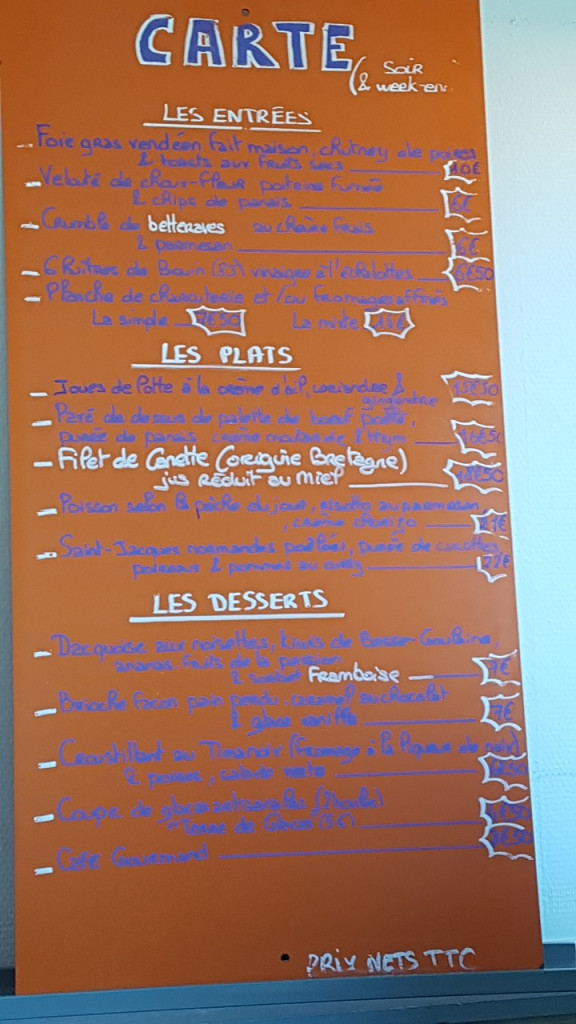 CARTE
(SOIR
& week-en
LES ENTRÉES
- Foie gras vendéen fait maison, chutney de poires
& toasts aux fruits secs 10€
- Velouté de chou-fleur poitrine fumée
& chips de panais 6€
- Crumble de betteraves au chèvre frais
& parmesan 6€
- 6 Huîtres de Bouin (85) vinaigre à l'échalottes 6€50
- Planche de charcuterie et/ou fromages affinés
La simple 7€50 La mixte 14€
LES PLATS
- Joues de lotte à la crème d'ail, coriandre &
gingembre 15€50
- Pavé de dessus de palette de boeuf poêlé,
purée de panais, crème moutarde & thym 16€50
- Filet de Canette (origine Bretagne)
jus réduit au miel €50
- Poisson selon la pêche du jour, risotto au parmesan
, crème chorizo 17€
- Saint-Jacques normandes poêlées, purée de carottes,
poireaux & pommes au curry 22€
LES DESSERTS
- Dacquoise aux noisettes, kiwis de Basse-Goulaine,
ananas, fruits de la passion
& sorbet Framboise 7€
- Brioche façon pain perdu, caramel au chocolat
& glace vanille 7€
- Croustillant au Timanoix (fromage à la liqueur de noix)
& poires, salade verte €50
- Coupe de glaces artisanales (2 boules)
"Terre de Glaces" €50
- Café Gourmand €50
PRIX NETS TTC